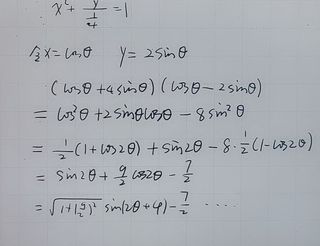 x² + y²/(1/4) = 1
令x=cosθ y=2sinθ
(cosθ+4sinθ)(cosθ-2sinθ)
= cos²θ+2sinθcosθ-8sin²θ
= 1/2(1+cos2θ)+sin2θ-8·1/2(1-cos2θ)
= sin2θ+9/2cos2θ-7/2
= √(1+(9/2)²) sin(2θ+φ)-7/2 ····